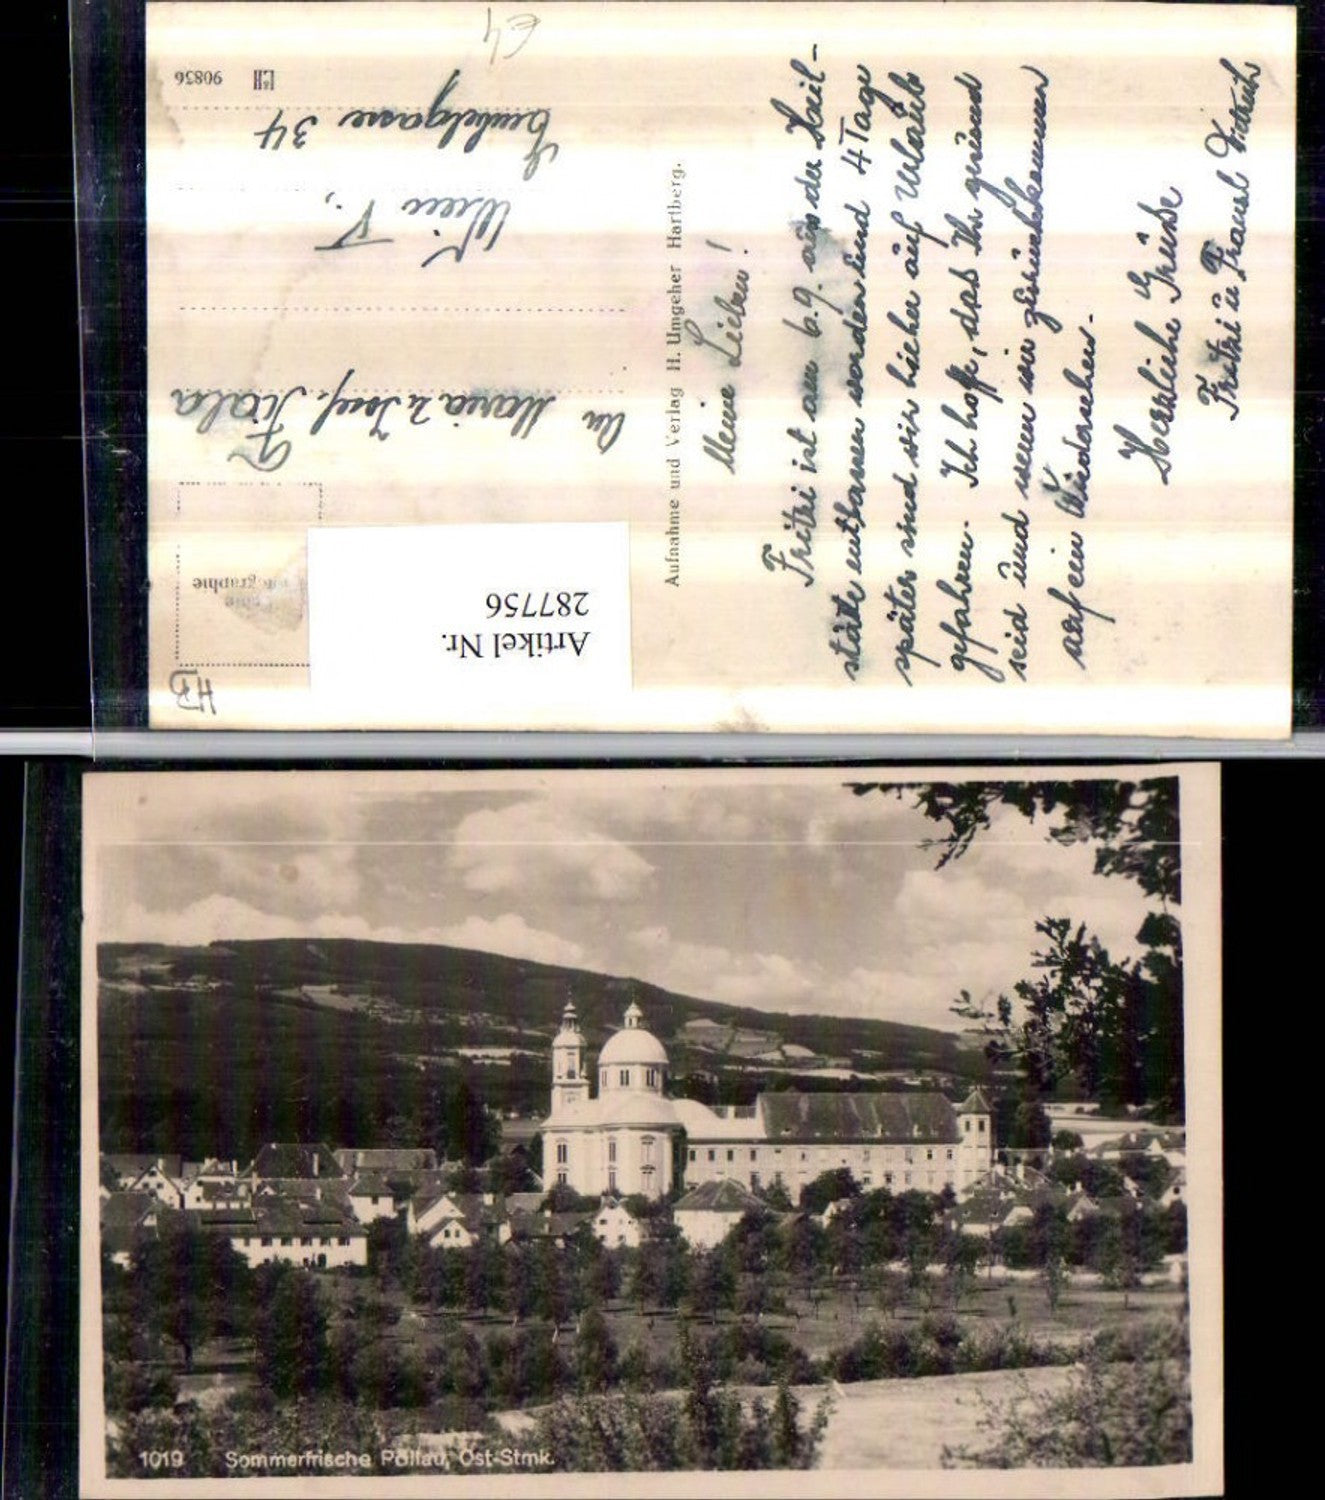 Meine Lieben!
Fritzi ist am 6.9. aus der Heil-
stätte entlassen worden und 4 Tage
später sind wir hieher auf Urlaub
gefahren. Ich hoffe, das Ihr gesund
seid und wenn wir zurückkommen
auf ein Wiedersehen.
Herzliche Grüße
Fritzi u Franzl
Aufnahme und Verlag H. Umgeher Hartberg.
HB
Artikel Nr.
287756
An Maria u Josef Fiala
Wien V.,
34
90836
1019 Sommerfrische Pöllau, Ost-Stmk.